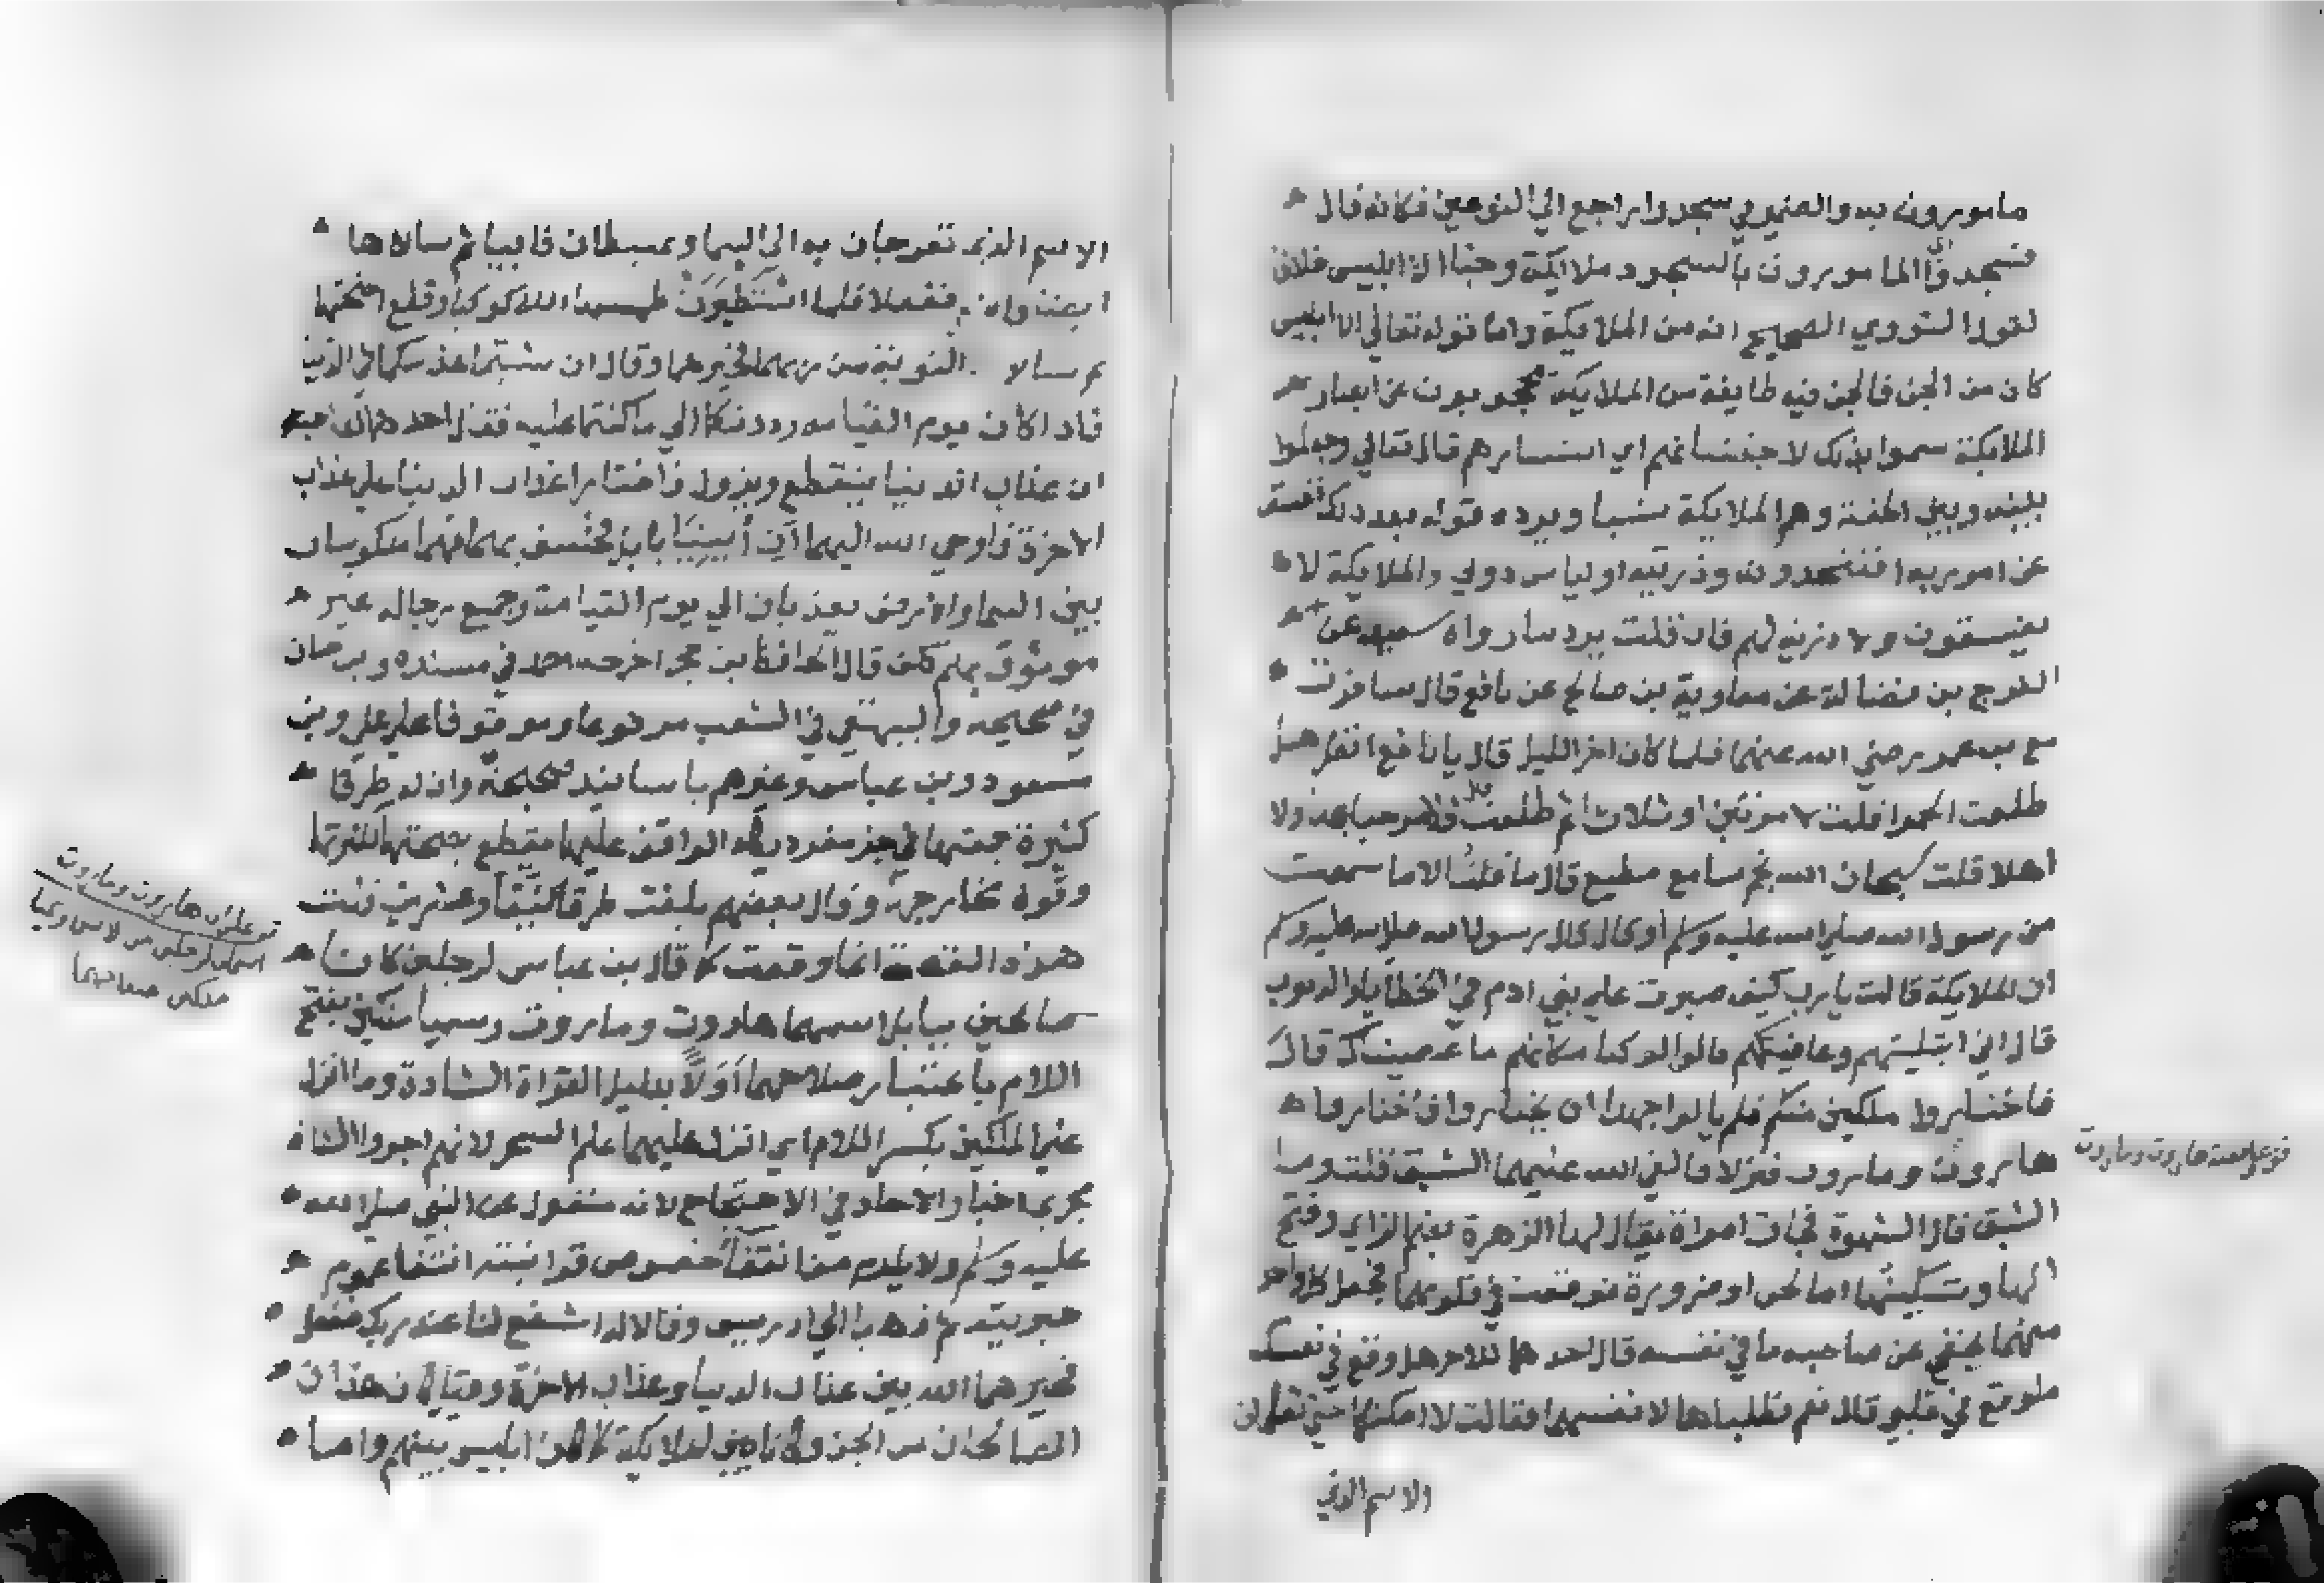 مامورون به والضمير في سجدوا راجع الي النوعين فكانه قال
فسجد اي المامورون بالسجود ملايكة وجنا الا ابليس خلافا
لقول النووي الصحيح انه من الملايكة واما قوله تعالي الا ابليس
كان من الجن فالجن فيه طايفة من الملايكة محجوبون عن ابصار
الملايكة سموا بذلك لاجتنانهم اي استتارهم قال تعالي وجعلوا
بينه وبين الجنة وهم الملايكة نسبا ويرده قوله بعد ذلك ففسق
عن امر ربه افتتخذونه وذريته اولياء من دوني والملايكة لا
يفسقون ولا ذرية لهم فان قلت يرد ما رواه سعيد عن
الفرج بن فضالة عن معاوية بن صالح عن نافع قال سافرت
مع بن عمر رضي الله عنهما فلما كان اخر الليل قال يا نافع انظر هل
طلعت الحمرا قلت لا مرتين او ثلاث ثم طلعت قال لا مرحبا بها ولا
اهلا قلت سبحان الله نجم سامع مطيع قال ما قلت الا ما سمعت
من رسول الله صلي الله عليه وسلم او قال قال رسول الله صلي الله عليه وسلم
ان الملايكة قالت يا رب كيف صبرت علي بني ادم في الخطايا والذنوب
قال اني ابتليتهم وعافيتكم قالوا لو كنا مكانهم ما عصيناك قال
فاختاروا ملكين منكم فلم يالوا جهدا ان يختاروا فاختاروا
هاروت وماروت فنزلا فالقي الله عليهما الشبق قلت وما
الشبق قال الشهوة فجات امراة يقال لها الزهرة بضم الزاي وفتح
الها وتسكينها اما لحن او ضرورة فوقعت في قلوبهما فجعل كل واحد
منهما يخفي عن صاحبه ما في نفسه قال احدهما للاخر هل وقع في نفسك
ما وقع في قلبي قال نعم فطلباها لانفسهما فقالت لا امكنكما حتي تعلمان
الاسم الذي
قف علي قصة هاروت وماروت
الاسم الذي تعرجان به الي السما وتهبطان فابيا ثم سالاها
ايضا وابت ففعلا فلما استطيرت طمسها الله كوكبا وقطع اجنحتها
ثم سالا التوبة من ربهما فخيرهما وقال ان شيتما عذبتكما في الدنيا
فاذا كان يوم القيامة رددتكما الي ما كنتما عليه فقال احدهما لصاحبه
ان عذاب الدنيا ينقطع ويزول فاختارا عذاب الدنيا علي عذاب
الاخرة فاوحي الله اليهما ان ائتيا بابل فخسف بهما فهما منكوسان
بين السما والارض يعذبان الي يوم القيامة وجميع رجاله غير
موثوق بهم لكن قال الحافظ بن حجر اخرجه احمد في مسنده وبن حبان
في صحيحه والبيهقي في الشعب مرفوعا وموقوفا علي علي وبن
مسعود وبن عباس وغيرهم باسانيد صحيحة وان له طرقا
كثيرة جمعتها في جزء مفرد يكاد الواقف عليها يقطع بصحتها لكثرتها
وقوة مخارجها وقال بعضهم بلغت طرقه نيفا وعشرين قلت
هذه القصة انما وقعت كما قال بن عباس لرجلين كانا
صالحين ببابل اسمهما هاروت وماروت وسميا ملكين بفتح
اللام باعتبار صلاحهما اولا بدليل القراة الشاذة وما انزل
علي الملكين بكسر اللام اي انزل عليهما علم السحر لانهم اجروا الشاذ
مجري اخبار الاحاد في الاحتجاج لانه منقول عن النبي صلي الله
عليه وسلم ولا يلزم من انتفا خصوص قرانيته انتفا عموم
خبريته ثم ذهبا الي ادريس وقالا له اشفع لنا عند ربك ففعل
فخيرهما الله بين عذاب الدنيا وعذاب الاخرة وقيل هذان
الصالحان من الجن وكانا بين الملايكة كما كان ابليس بينهم واما
قف علي ان هاروت وماروت
اسمان لرجلين من الانس وسميا
ملكين لصلاحهما